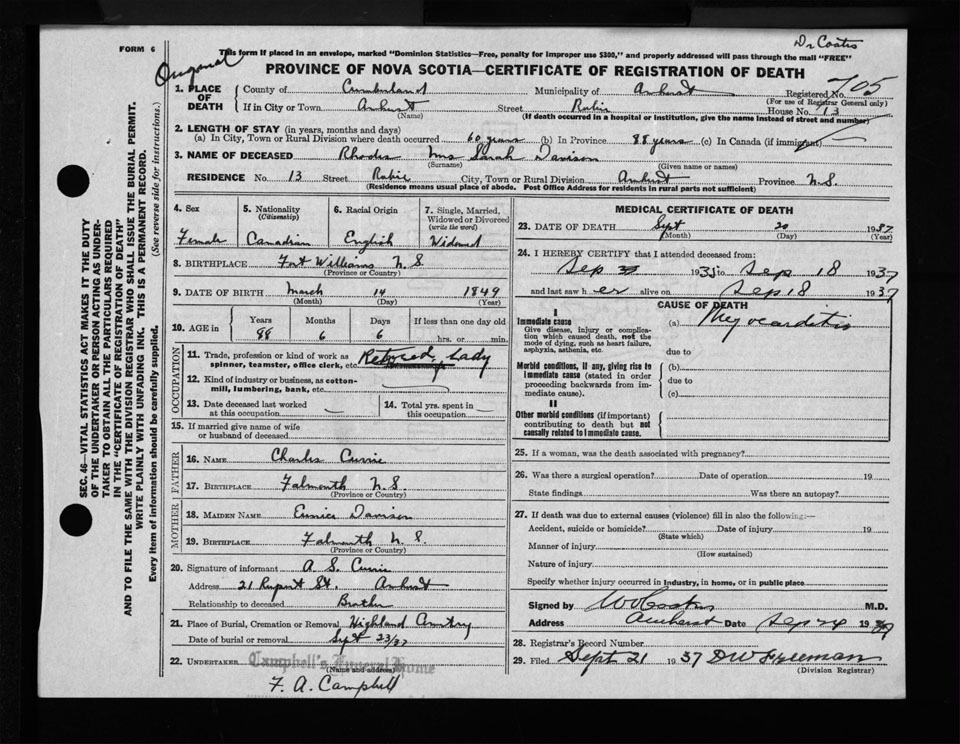 Dr Coates
FORM 6
This form if placed in an envelope, marked "Dominion Statistics—Free, penalty for improper use $300," and properly addressed will pass through the mail "FREE"
Original
PROVINCE OF NOVA SCOTIA—CERTIFICATE OF REGISTRATION OF DEATH
1. PLACE OF DEATH
County of Cumberland Municipality of Amherst Registered No. 705
(For use of Registrar General only)
If in City or Town Amherst Street Robie House No. 13
(Name) (If death occurred in a hospital or institution, give the name instead of street and number)
2. LENGTH OF STAY (in years, months and days)
(a) In City, Town or Rural Division where death occurred 60 years (b) In Province 88 years (c) In Canada (if immigrant)
3. NAME OF DECEASED Rhodes Mrs Sarah Davison
(Surname) (Given name or names)
RESIDENCE No. 13 Street Robie City, Town or Rural Division Amherst Province N.S.
(Residence means usual place of abode. Post Office Address for residents in rural parts not sufficient)
4. Sex Female
5. Nationality (Citizenship) Canadian
6. Racial Origin English
7. Single, Married, Widowed or Divorced (write the word) Widowed
8. BIRTHPLACE Port Williams N.S.
(Province or Country)
9. DATE OF BIRTH March 14 1849
(Month) (Day) (Year)
10. AGE in Years Months Days If less than one day old
88 6 6 hrs. or min.
OCCUPATION
11. Trade, profession or kind of work as spinner, teamster, office clerk, etc. Retired Lady
12. Kind of industry or business, as cotton-mill, lumbering, bank, etc. —
13. Date deceased last worked at this occupation —
14. Total yrs. spent in this occupation —
15. If married give name of wife or husband of deceased
FATHER
16. NAME Charles Currie
17. BIRTHPLACE Falmouth N.S.
(Province or Country)
MOTHER
18. MAIDEN NAME Eunice Davison
19. BIRTHPLACE Falmouth N.S.
(Province or Country)
20. Signature of informant A. S. Currie
Address 21 Rupert St. Amherst
Relationship to deceased Brother
21. Place of Burial, Cremation or Removal Highland Cemetery
Date of burial or removal Sept 23/37
22. UNDERTAKER Campbell's Funeral Home
(Name and address)
F. A. Campbell
MEDICAL CERTIFICATE OF DEATH
23. DATE OF DEATH Sept 20 1937
(Month) (Day) (Year)
24. I HEREBY CERTIFY that I attended deceased from:
Sep 1935 to Sep 18 1937
and last saw her alive on Sep 18 1937
CAUSE OF DEATH
I
Immediate cause
Give disease, injury or complication which caused death, not the mode of dying, such as heart failure, asphyxia, asthenia, etc.
(a) Myocarditis
due to
Morbid conditions, if any, giving rise to immediate cause (stated in order proceeding backwards from immediate cause).
(b)
due to
(c)
II
Other morbid conditions (if important) contributing to death but not causally related to immediate cause.
25. If a woman, was the death associated with pregnancy?
26. Was there a surgical operation? Date of operation 19
State findings Was there an autopsy?
27. If death was due to external causes (violence) fill in also the following:—
Accident, suicide or homicide? Date of injury 19
(State which)
Manner of injury
(How sustained)
Nature of injury
Specify whether injury occurred in industry, in home, or in public place
Signed by M.D.
Address Amherst Date Sep 24 19
28. Registrar's Record Number
29. Filed Sept 21 1937 D W Freeman
(Division Registrar)
SEC. 46—VITAL STATISTICS ACT MAKES IT THE DUTY
OF THE UNDERTAKER OR PERSON ACTING AS UNDER-
TAKER TO OBTAIN ALL THE PARTICULARS REQUIRED
IN THE "CERTIFICATE OF REGISTRATION OF DEATH"
AND TO FILE THE SAME WITH THE DIVISION REGISTRAR WHO SHALL ISSUE THE BURIAL PERMIT.
WRITE PLAINLY WITH UNFADING INK. THIS IS A PERMANENT RECORD.
Every item of information should be carefully supplied. (See reverse side for instructions.)